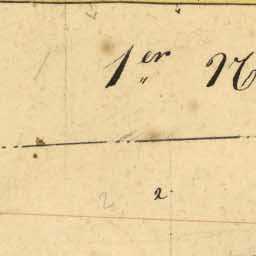 1er N
2 2